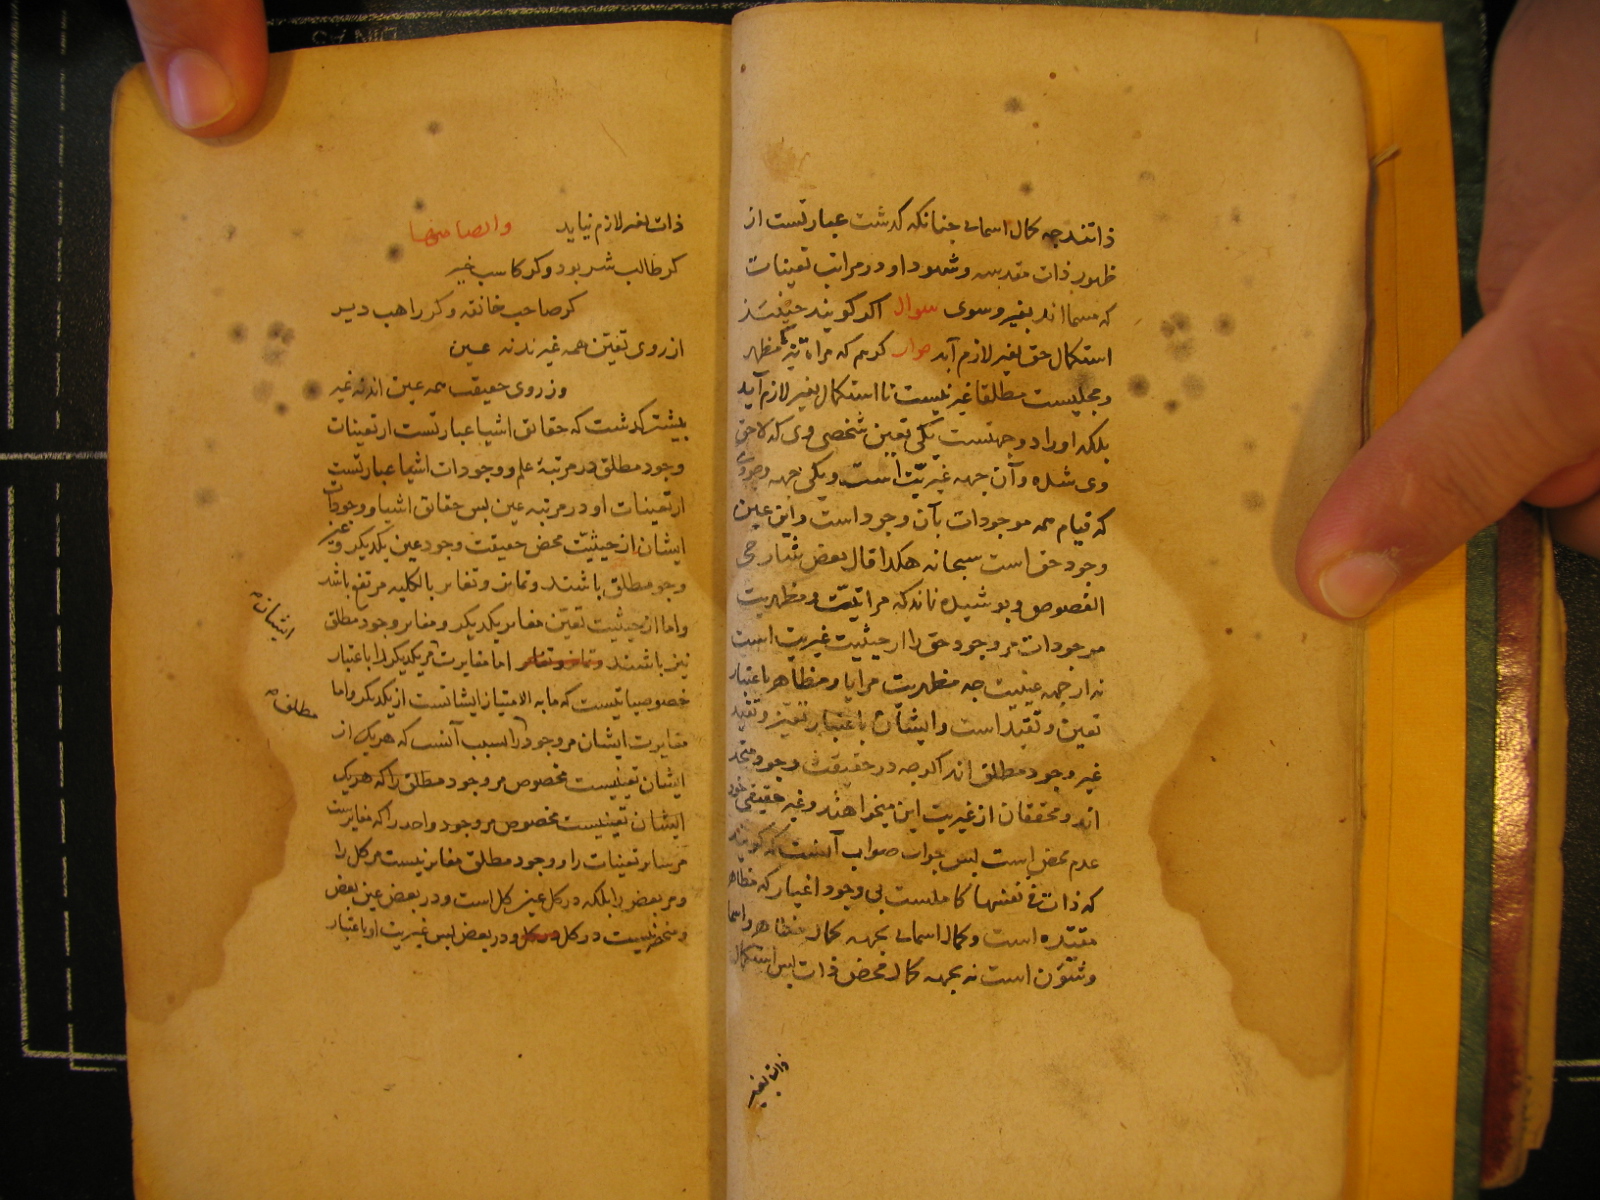 ذاتند چه کمال اسمایی چنانکه گذشت عبارتست از
ظهور ذات مقدسه و شهود او در مراتب تعینات
که مسما اند بغیر و سوی سوال اگر گویند حینئذ
استکمال حق بغیر لازم آید جواب گویم که مرآة مظهر
و مجلیست مطلقا غیر نیست تا استکمال بغیر لازم آید
بلکه او را دو جهتست یکی تعین شخصی وی که لاحق
وی شده و آن جهه غیریت است و یکی جهه وجود
که قیام همه موجودات بآن وجود است و این عین
وجود حق است سبحانه هکذا قال بعض شارحی
الفصوص و پوشیده نماند که مرآتیت و مظهریت
موجودات مر وجود حق را از حیثیت غیریت است
نه از جهه عینیت چه مظهریت مرایا و مظاهر باعتبار
تعین و تقید است و ایشان باعتبار تعین و تقید
غیر وجود مطلق اند اگرچه در حقیقت وجود متحد
اند و محققان از غیریت این میخواهند و غیر حقیقی خود
عدم محض است پس جواب صواب آنست که گویند
که ذات فی نفسها کاملست بی وجود اغیار که مظاهر
مقیده است و کمال اسمایی بجهه کمال مظاهر و اسما
و شئون است نه بجهه کمال محض ذات پس استکمال
ذات بغیر
ذات بغیر لازم نیاید وایضا منها
کر طالب شر بود و کر کاسب خیر
کر صاحب خانقه و کر راهب دیر
از روی تعین همه غیرند نه عین
وز روی حقیقت همه عین اند نه غیر
پیشتر گذشت که حقائق اشیا عبارتست از تعینات
وجود مطلق در مرتبهٔ علم و وجودات اشیا عبارتست
از تعینات او در مرتبه عین پس حقائق اشیا و وجودات
ایشان از حیثیت محض حقیقت وجود عین یکدیگر و عین
وجود مطلق باشند و تمایز و تغایر بالکلیه مرتفع باشد
و اما از حیثیت تعین مغایر یکدیگر و مغایر وجود مطلق
نیز باشند اما مغایرت مر یکدیگر را باعتبار
ایشان
خصوصیاتیست که ما به الامتیاز ایشانست از یکدیگر و اما
مطلق
مغایرت ایشان مر وجود را بسبب آنست که هر یک از
ایشان تعینیست مخصوص مر وجود مطلق را که هر یک
ایشان تعینیست مخصوص مر وجود واحد را که مغایرست
مر سایر تعینات را و وجود مطلق مغایر نیست مر کل را
و مر بعض را بلکه در کل عین کل است و در بعض عین بعض
و منحصر نیست در کل و در بعض پس غیریت او باعتبار